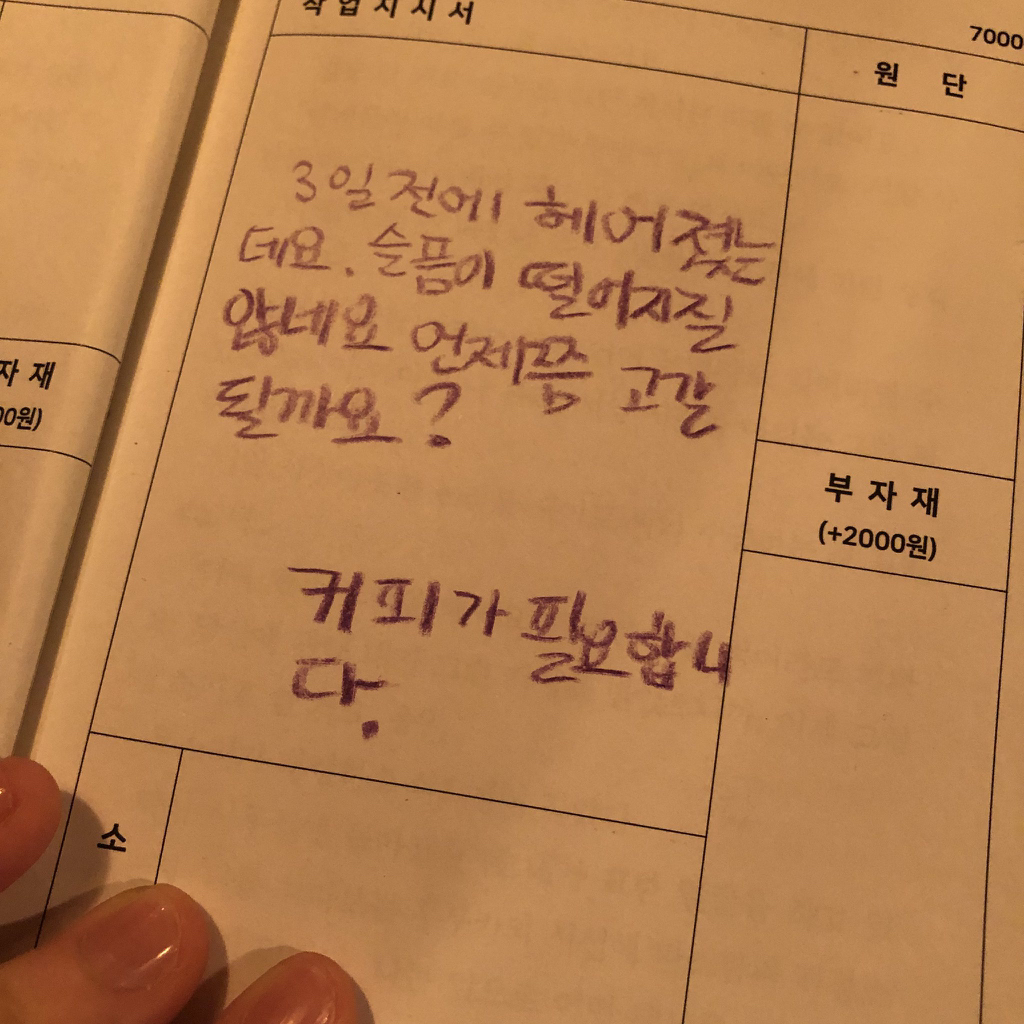 작업지시서
7000
원 단
3일 전에 헤어졌는
데요. 슬픔이 떨어지질
않네요 언제쯤 고갈
될까요?
자 재
00원)
부 자 재
(+2000원)
커피가 필요합니
다.
소